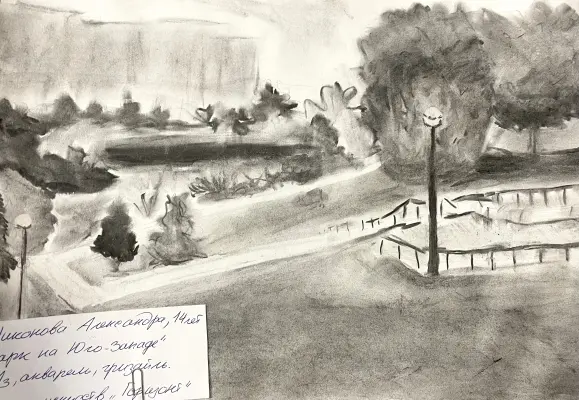 Никонова Александра, 14 лет
арк на Юго-Западе"
акварель, гризайль.
"Горизонт"